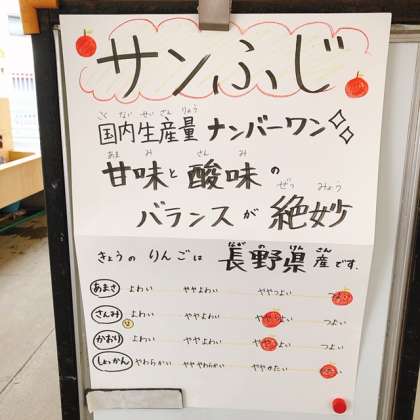 サンふじ
こくないせいさんりょう
国内生産量ナンバーワン
あまみ さんみ
甘味と酸味の
ぜつみょう
バランスが絶妙
ながのけんさん
きょうのりんごは 長野県産です。
あまさ よわい ややよわい ややつよい
さんみ よわい ややよわい つよい つよい
かおり よわい ややよわい つよい つよい
しょっかん やわらかい ややわらかい ややかたい